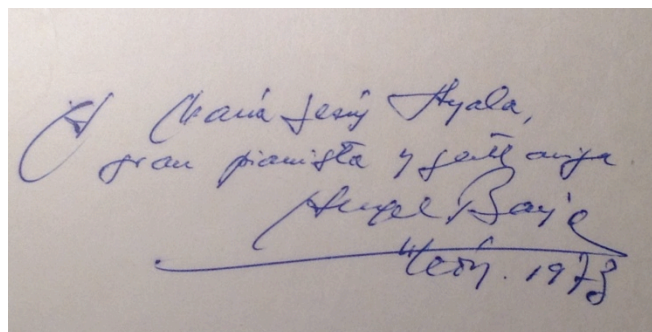 A María Jesús Ayala,
gran pianista y gentil amiga
Angel Barja
León. 1973